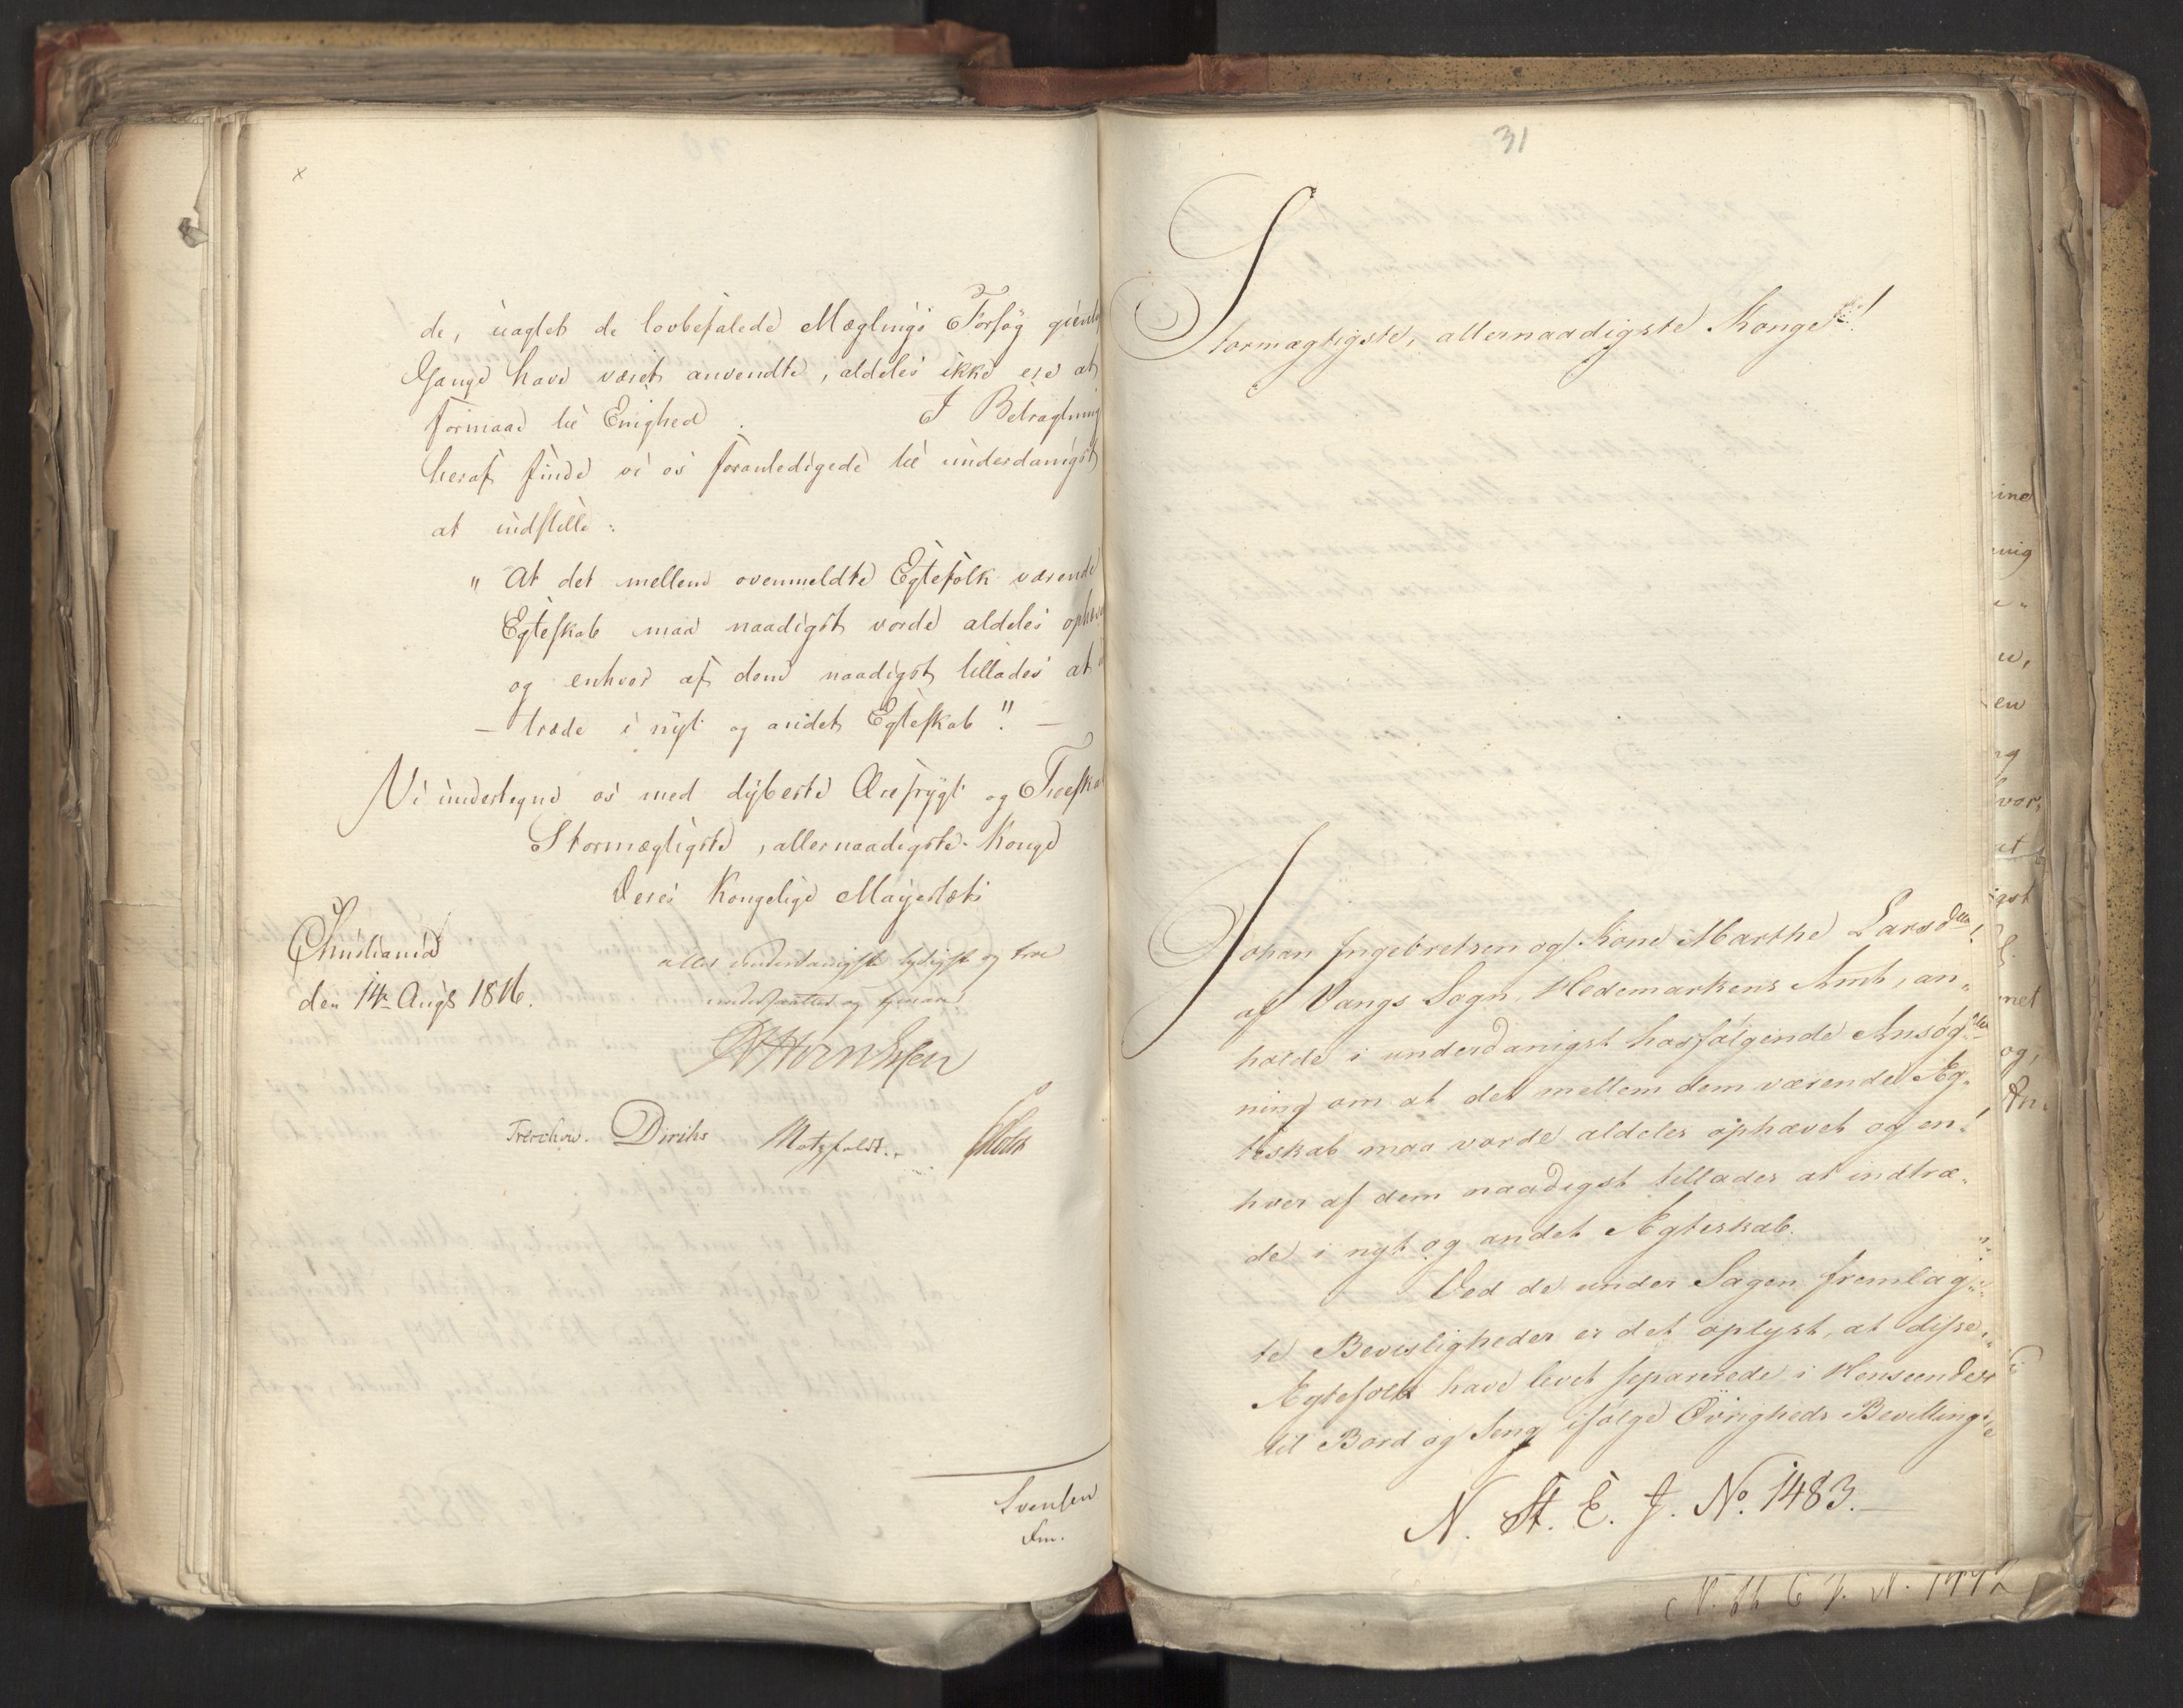 de, uagtet de lovbefalede Mæglings Forsøg
Gange have været anvendte, aldeles ikke ere at
formaae til Enighed. I Betragtning
heraf finde vi os foranledigede til underdanigst
at indstille:
" At det mellem ovenmeldte Egtefolk værende
Egteskab maae naadigst vorde aldeles ophæve
og enhver af dem naadigst tillades at
– træde i nyt og andet Egteskab". –
Vi undertegne os med dybeste Ærefrygt og Troeskab
Stormægtigste, allernaadigste Konge
Deres Kongelige Mayestæts
Christiania
den 14de Augs 1816.
aller underdanigste lydigste og troe
undersaatter og tjenere
Treschow. Diriks Motzfeldt.
Svensen
Fm.
31
Stormægtigste, allernaadigste Konge!
Johan Ingebretsen og Kone Marthe Larsdtter
af Vangs Sogn, Hedemarkens Amt, an-
holde i underdanigst hosfølgende Ansøg-
ning om at det mellem dem værende Æg-
teskab maa vorde aldeles ophævet og en-
hver af dem naadigst tillades at indtræ-
de i nyt og andet Ægteskab.
Ved de under Sagen fremlag-
te Bevisligheder er det oplyst, at disse
Ægtefolk have levet separerede i Henseender
til Bord og Seng ifølge Øvrigheds Bevilling
N. St. E. J. No. 1483.